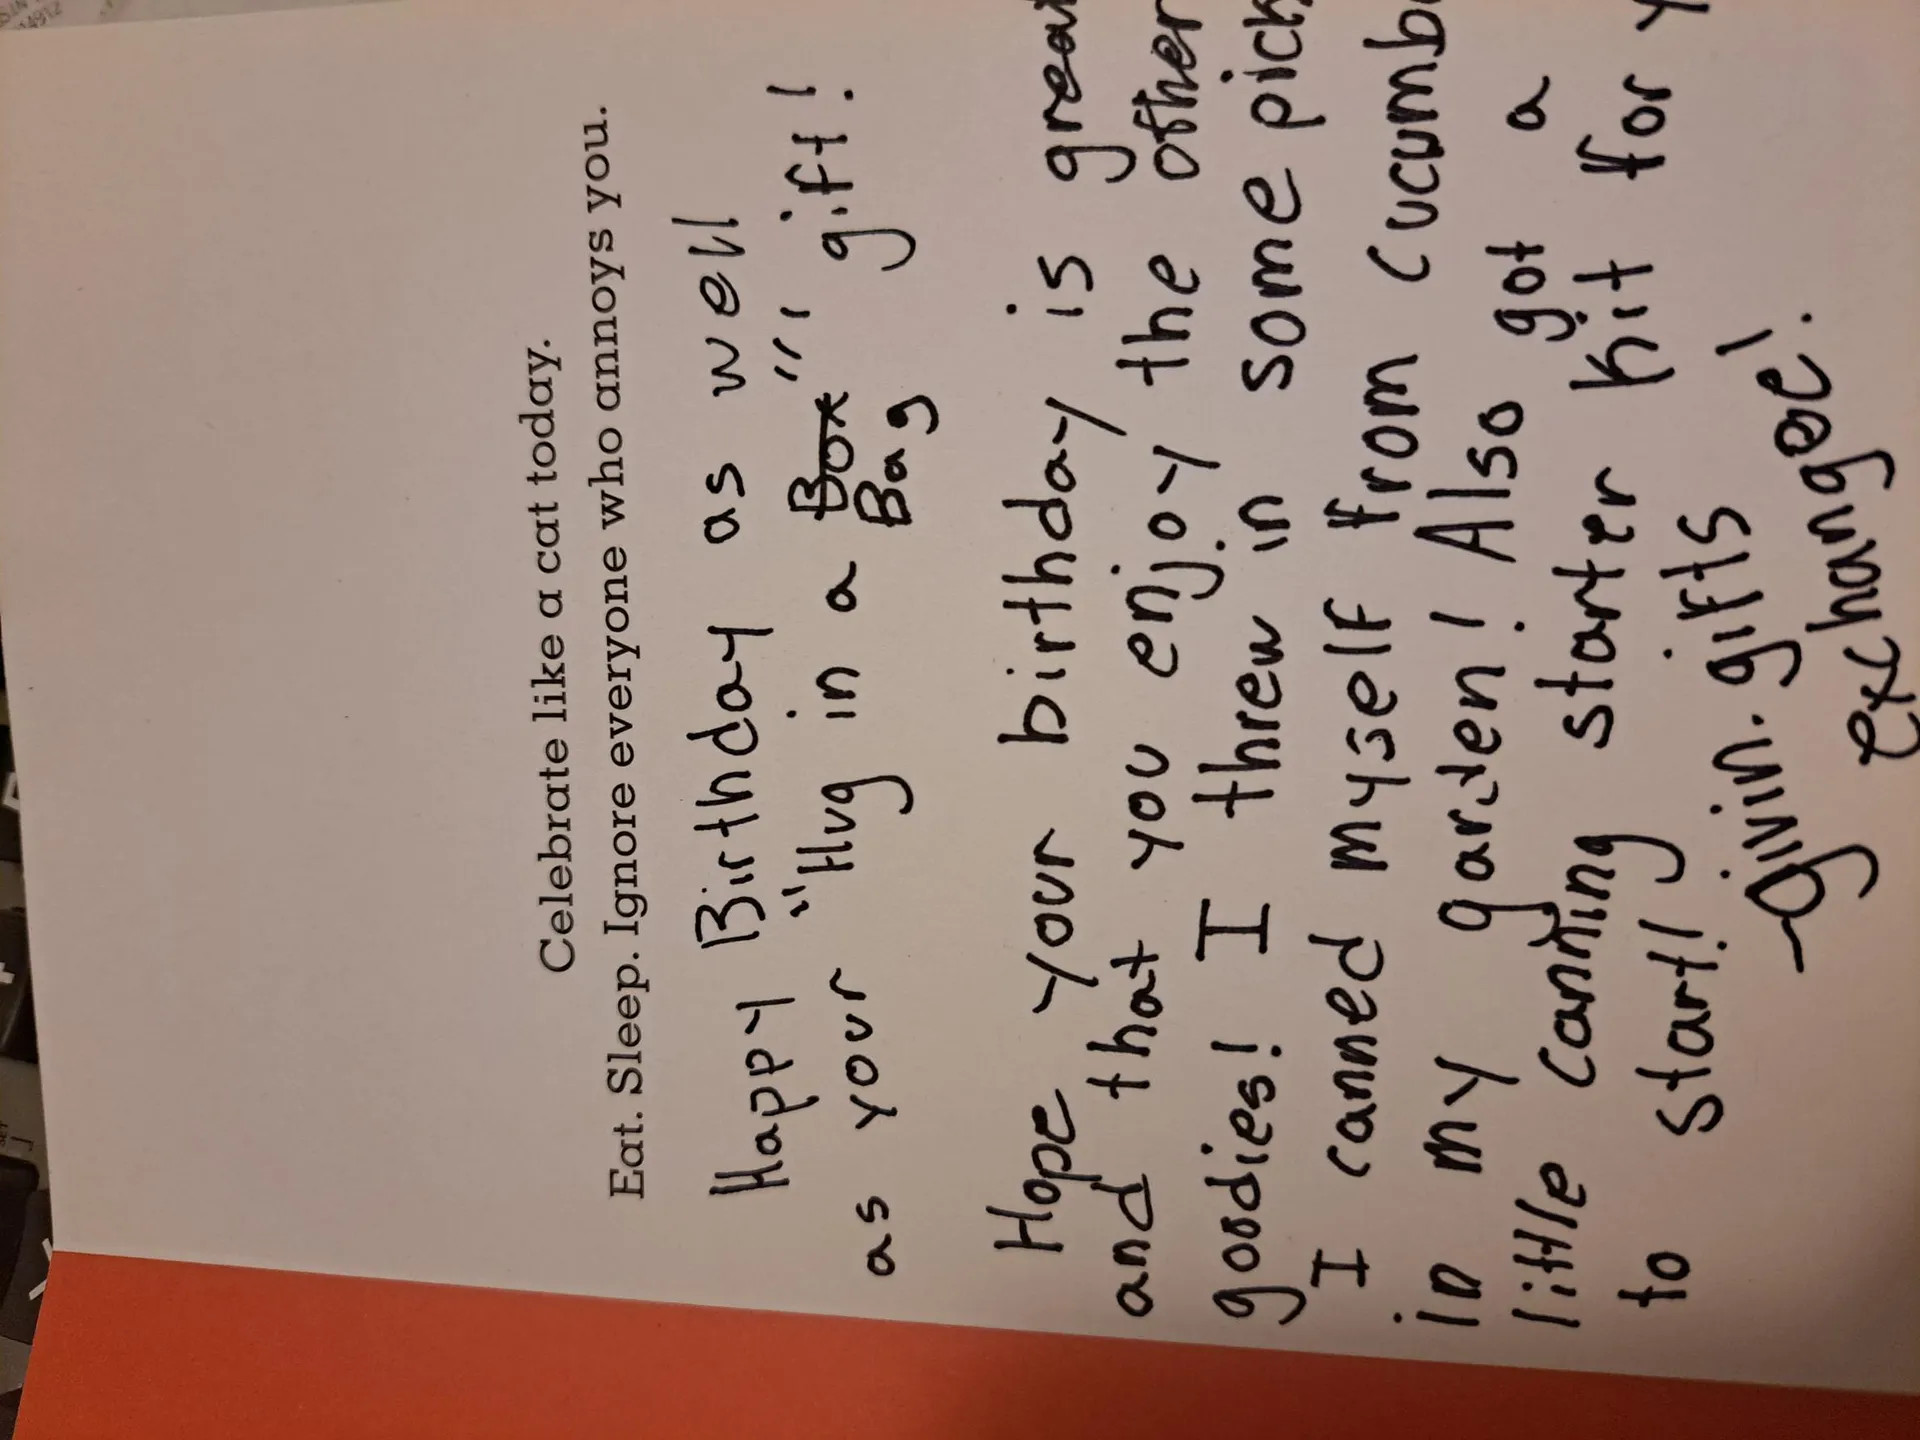 Celebrate like a cat today.
Eat. Sleep. Ignore everyone who annoys you.
Happy Birthday as well
as your "Hug in a Box" gift!
Bag
Hope your birthday is great
and that you enjoy the other
goodies! I threw in some pick
I canned myself from cucumb
in my garden! Also got a
little canning starter kit for y
to start!
-givin.gifts
exchangee!